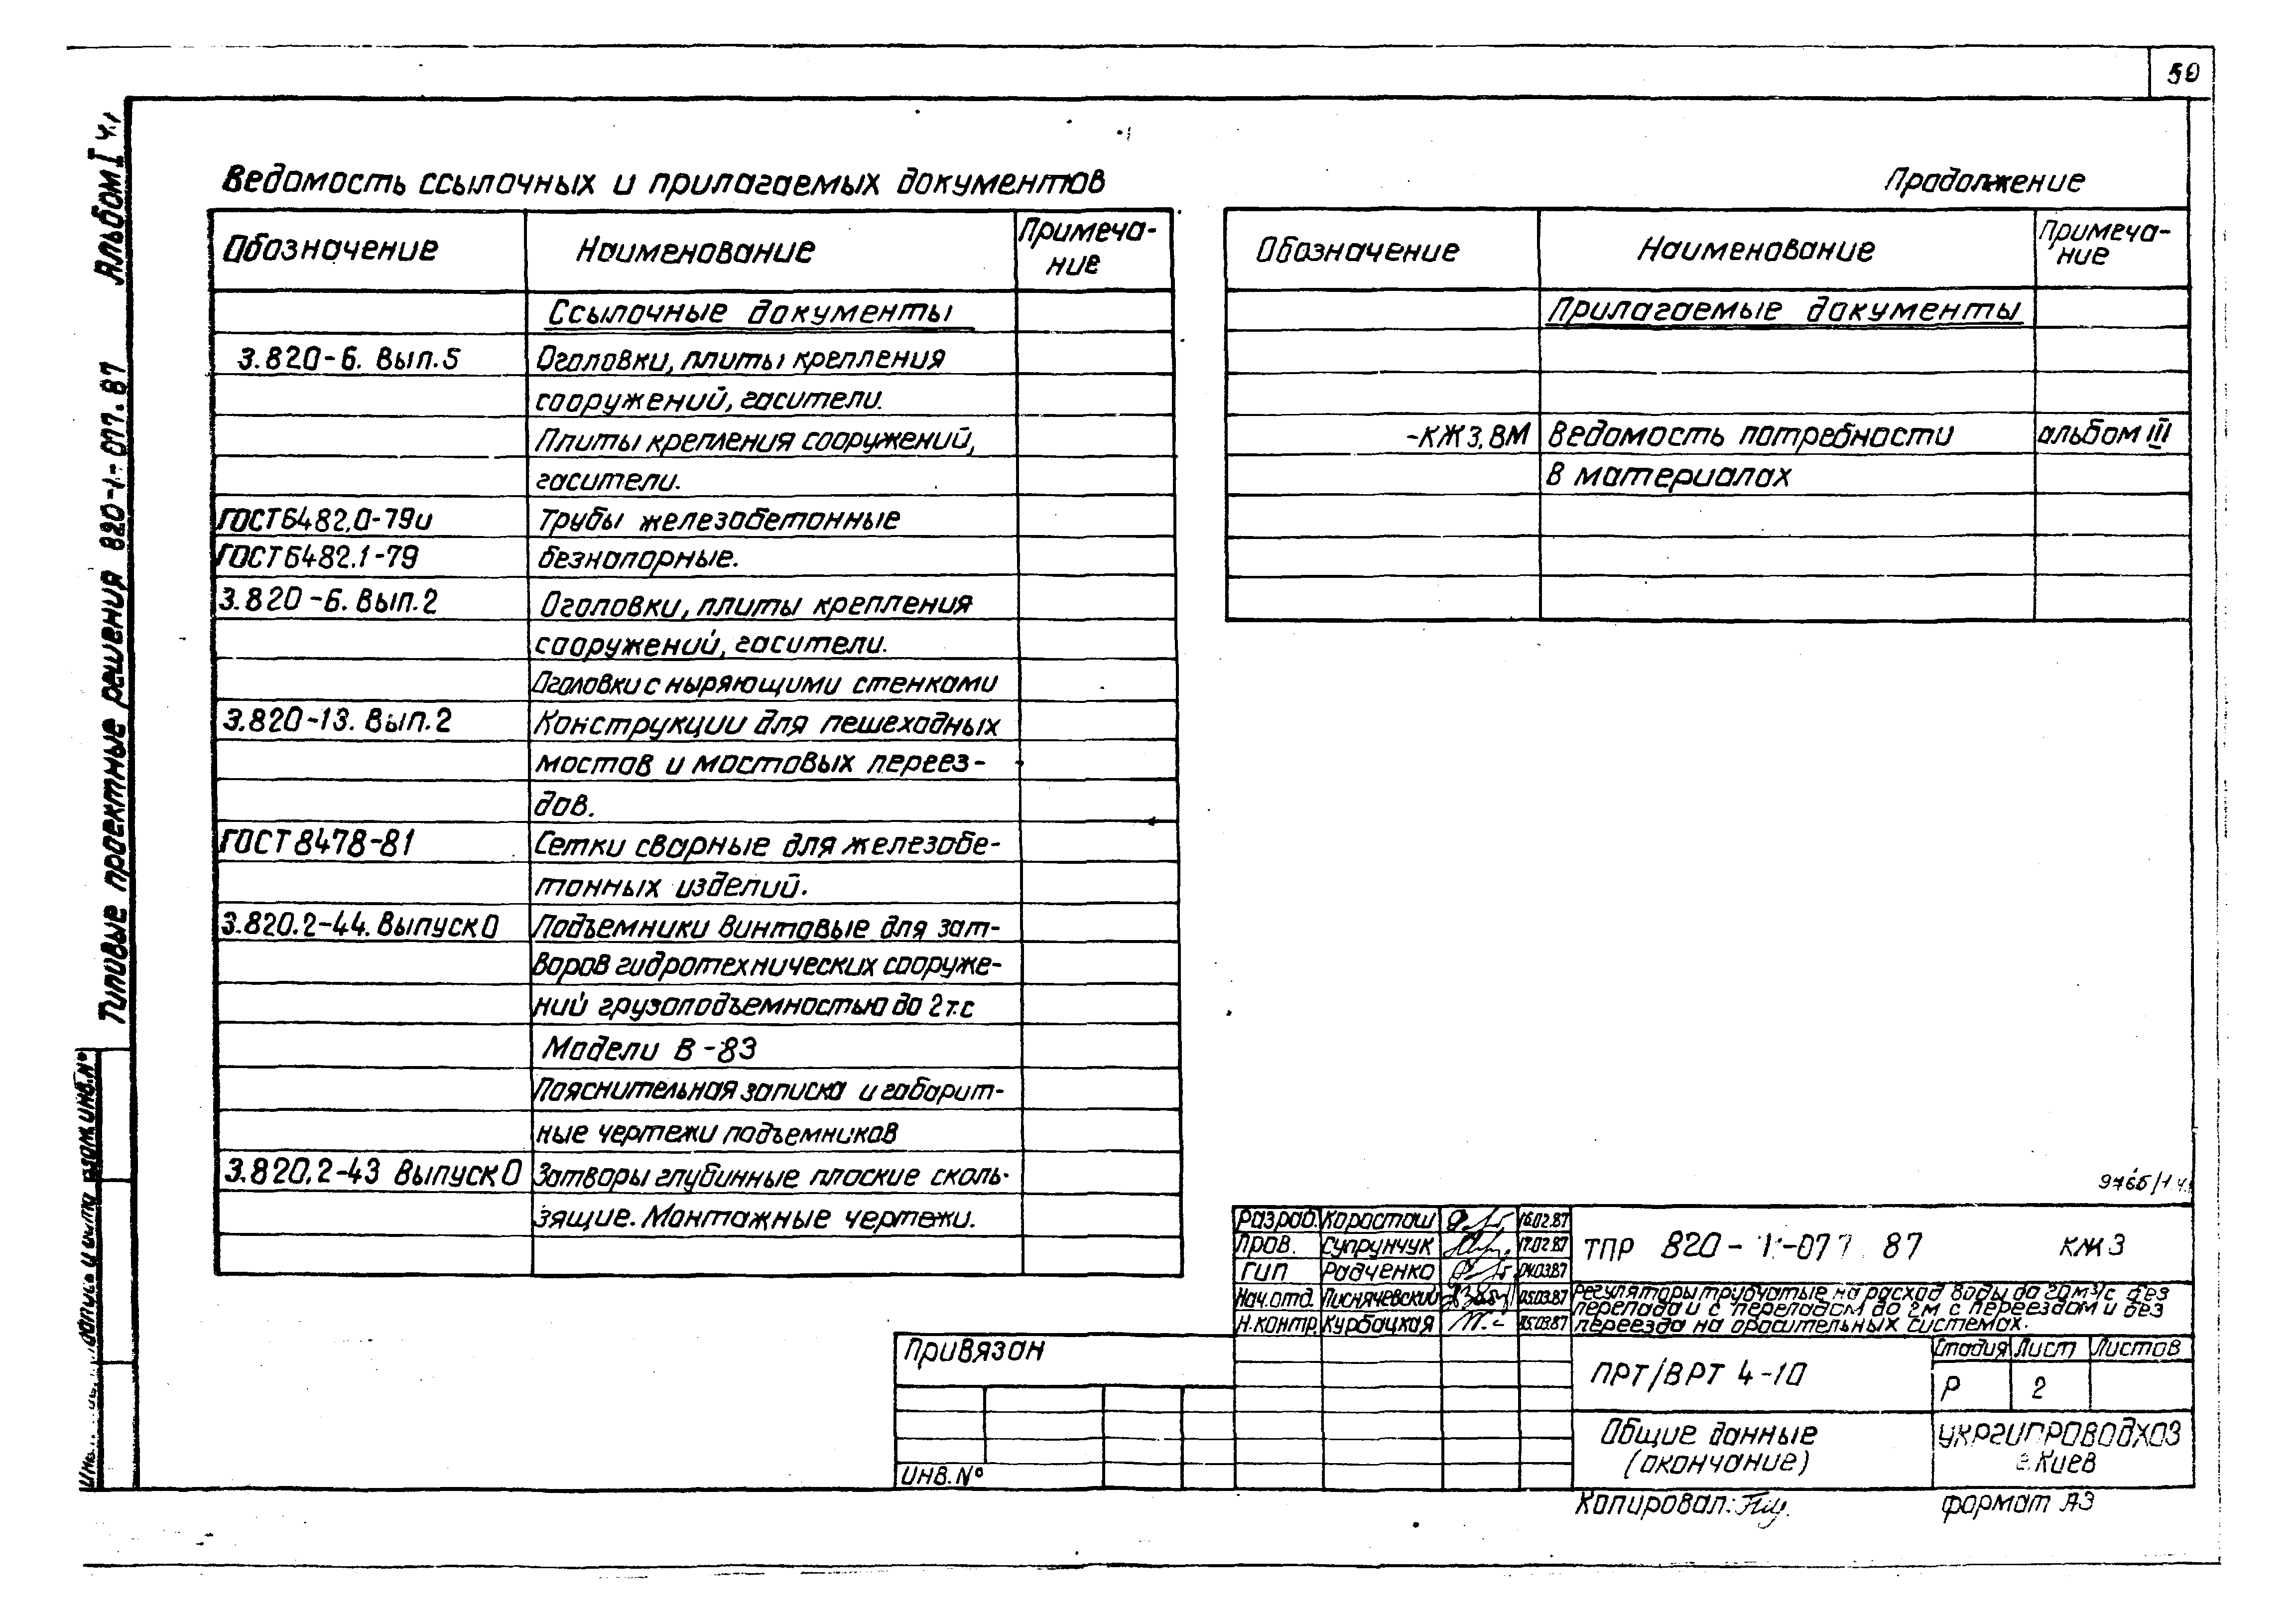 50
Альбом I ч.1
Типовые проектные решения 820-1-077.87
Ведомость ссылочных и прилагаемых документов
Обозначение Наименование Примеча-
ние
Ссылочные документы
3.820-6. Вып.5 Оголовки, плиты крепления
сооружений, гасители.
Плиты крепления сооружений,
гасители.
ГОСТ6482.0-79и Трубы железобетонные
ГОСТ6482.1-79 безнапорные.
3.820-6. Вып.2 Оголовки, плиты крепления
сооружений, гасители.
Оголовки с ныряющими стенками
3.820-13. Вып.2 Конструкции для пешеходных
мостов и мостовых переез-
дов.
ГОСТ 8478-81 Сетки сварные для железобе-
тонных изделий.
3.820.2-44. Выпуск 0 Подъемники винтовые для зат-
воров гидротехнических сооруже-
ний грузоподъемностью до 2т.с
Модели В-83
Пояснительная записка и габарит-
ные чертежи подъемников
3.820.2-43 Выпуск 0 Затворы глубинные плоские сколь-
зящие. Монтажные чертежи.
Продолжение
Обозначение Наименование Примеча-
ние
Прилагаемые документы
-КЖ3.ВМ Ведомость потребности альбом III
в материалах
9765/1 ч.1
Разраб. Коросташ 16.02.87
Пров. Супрунчук 17.02.87
ГИП Радченко 04.03.87
Нач.отд. Лиснячевский 05.03.87
Н.контр. Курбацкая 05.03.87
ТПР 820-1-077.87 КЖ3
Регуляторы трубчатые на расход воды до 20м³/с без
перепада и с перепадом до 2м с переездом и без
переезда на оросительных системах.
Привязан
ИНВ.N°
ПРТ/ВРТ 4-10
Стадия Лист Листов
Р 2
Общие данные
(окончание)
УКРГИПРОВОДХОЗ
г.Киев
Копировал:
формат А3
взам.инв.N°